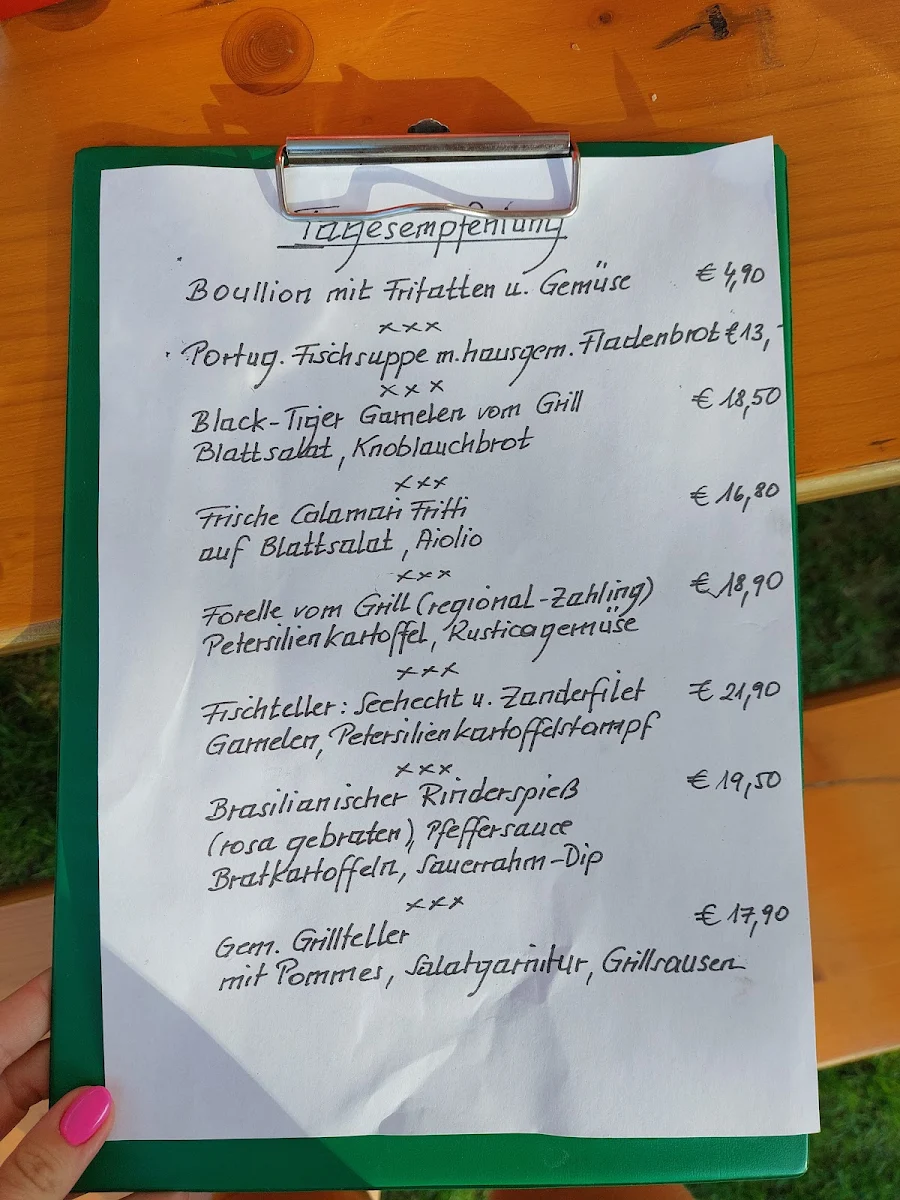 Tagesempfehlung
Boullion mit Fritatten u. Gemüse € 4,90
xxx
Portug. Fischsuppe m. hausgem. Fladenbrot € 13,-
xxx
Black-Tiger Garnelen vom Grill € 18,50
Blattsalat, Knoblauchbrot
xxx
Frische Calamari Fritti € 16,80
auf Blattsalat, Aiolio
xxx
Forelle vom Grill (regional-Zahling) € 18,90
Petersilienkartoffel, Rusticagemüse
xxx
Fischteller: Seehecht u. Zanderfilet € 21,90
Garnelen, Petersilienkartoffelstampf
xxx
Brasilianischer Rinderspieß € 19,50
(rosa gebraten), Pfeffersauce
Bratkartoffeln, Sauerrahm-Dip
xxx
Gem. Grillteller € 17,90
mit Pommes, Salatgarnitur, Grillsausen